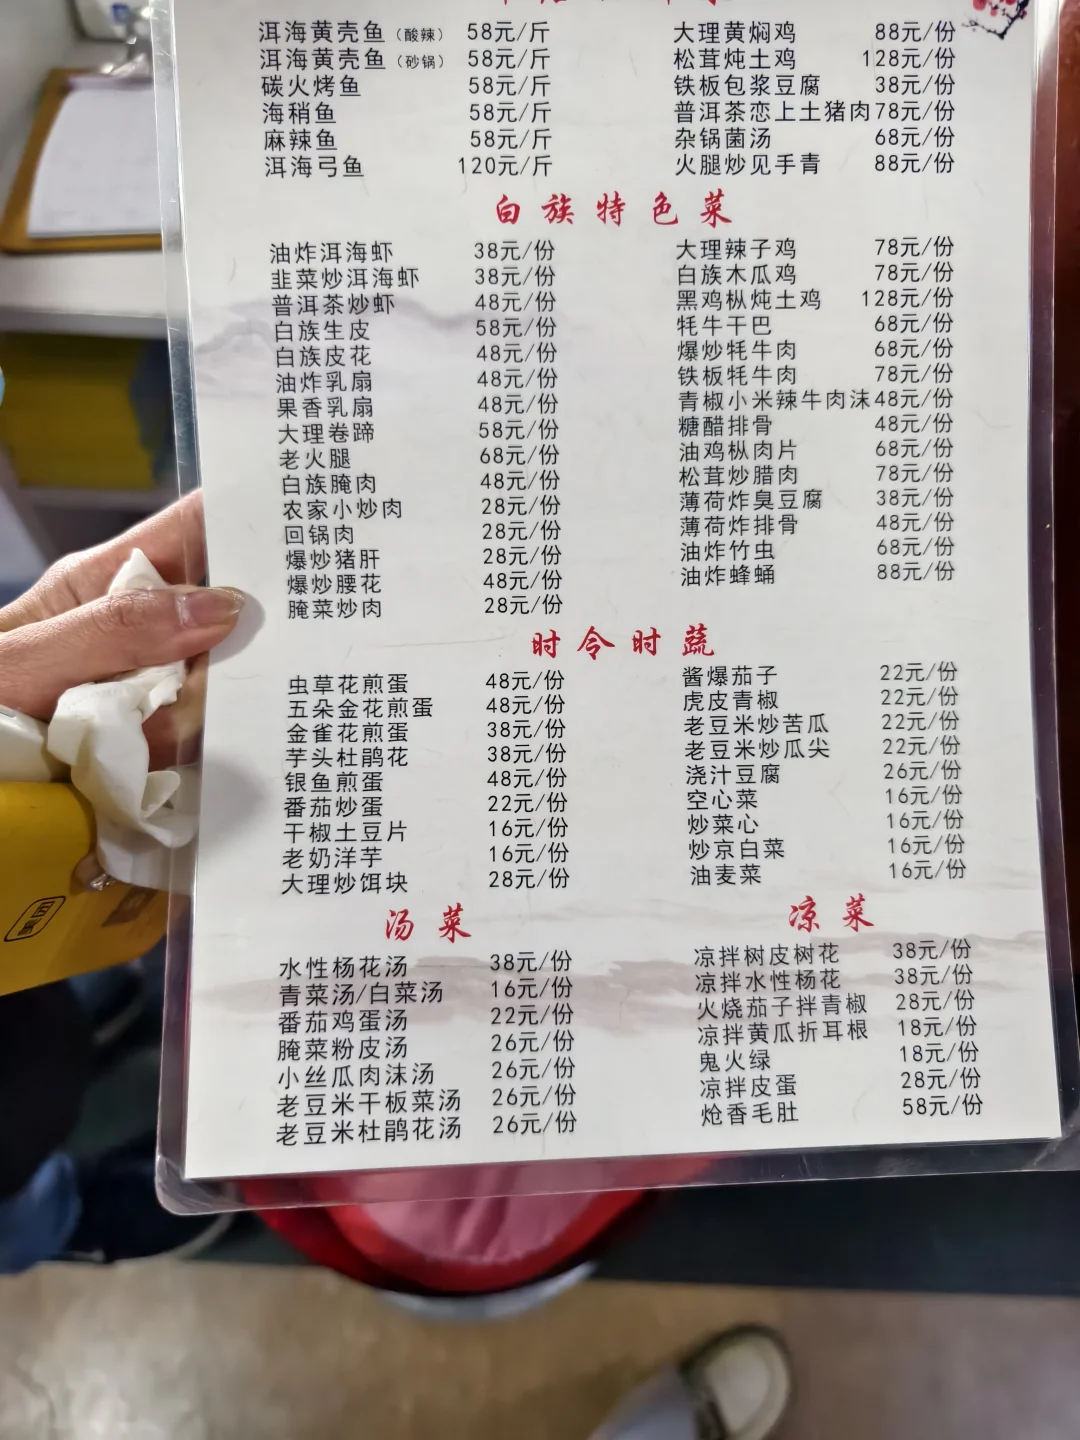 洱海黄壳鱼（酸辣） 58元/斤
洱海黄壳鱼（砂锅） 58元/斤
碳火烤鱼 58元/斤
海稍鱼 58元/斤
麻辣鱼 58元/斤
洱海弓鱼 120元/斤
大理黄焖鸡 88元/份
松茸炖土鸡 128元/份
铁板包浆豆腐 38元/份
普洱茶恋上土猪肉 78元/份
杂锅菌汤 68元/份
火腿炒见手青 88元/份
白族特色菜
油炸洱海虾 38元/份
韭菜炒洱海虾 38元/份
普洱茶炒虾 48元/份
白族生皮 58元/份
白族皮花 48元/份
油炸乳扇 48元/份
果香乳扇 48元/份
大理卷蹄 58元/份
老火腿 68元/份
白族腌肉 48元/份
农家小炒肉 28元/份
回锅肉 28元/份
爆炒猪肝 28元/份
爆炒腰花 48元/份
腌菜炒肉 28元/份
大理辣子鸡 78元/份
白族木瓜鸡 78元/份
黑鸡枞炖土鸡 128元/份
牦牛干巴 68元/份
爆炒牦牛肉 68元/份
铁板牦牛肉 78元/份
青椒小米辣牛肉沫 48元/份
糖醋排骨 48元/份
油鸡枞肉片 68元/份
松茸炒腊肉 78元/份
薄荷炸臭豆腐 38元/份
薄荷炸排骨 48元/份
油炸竹虫 68元/份
油炸蜂蛹 88元/份
时令时蔬
虫草花煎蛋 48元/份
五朵金花煎蛋 48元/份
金雀花煎蛋 38元/份
芋头杜鹃花 38元/份
银鱼煎蛋 48元/份
番茄炒蛋 22元/份
干椒土豆片 16元/份
老奶洋芋 16元/份
大理炒饵块 28元/份
酱爆茄子 22元/份
虎皮青椒 22元/份
老豆米炒苦瓜 22元/份
老豆米炒瓜尖 22元/份
浇汁豆腐 26元/份
空心菜 16元/份
炒菜心 16元/份
炒京白菜 16元/份
油麦菜 16元/份
汤菜
水性杨花汤 38元/份
青菜汤/白菜汤 16元/份
番茄鸡蛋汤 22元/份
腌菜粉皮汤 26元/份
小丝瓜肉沫汤 26元/份
老豆米干板菜汤 26元/份
老豆米杜鹃花汤 26元/份
凉菜
凉拌树皮树花 38元/份
凉拌水性杨花 38元/份
火烧茄子拌青椒 28元/份
凉拌黄瓜折耳根 18元/份
鬼火绿 18元/份
凉拌皮蛋 28元/份
炝香毛肚 58元/份